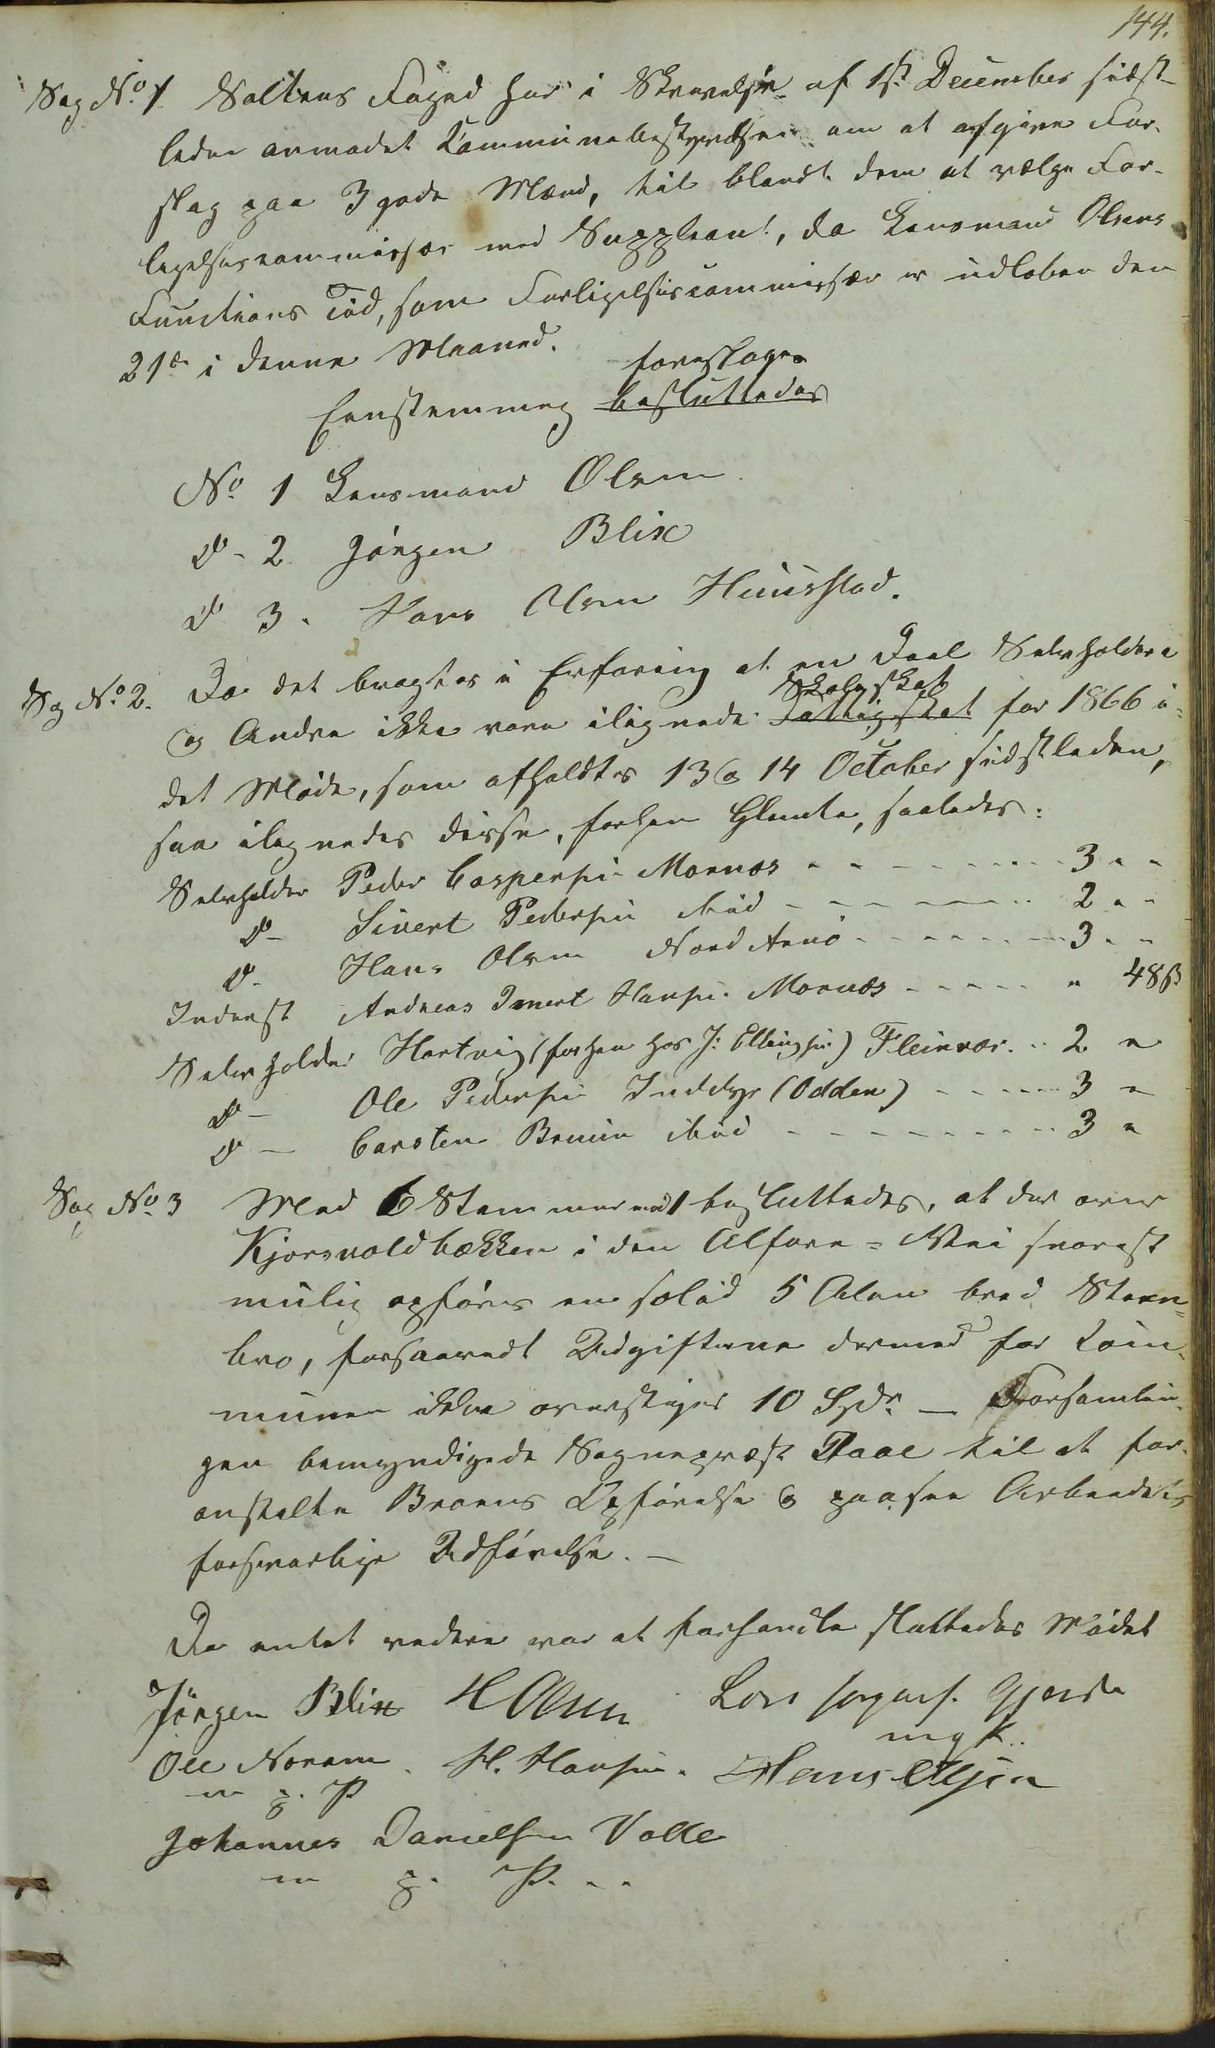 144.
Sag No 1. Saltens Foged har i Skrivelse af 1ste December sidst-
leden anmodet Kommunebestyrelsen om at afgive For-
slag paa 3 gode Mænd, til blandt dem at vælge For-
ligelsescommissær med Suppleant, da Lensmand Olsens
Functions Tid, som Forligelsescommissær er udloben den
21de i denne Maaned.
foreslages
Eenstemmig besluttedes
No 1 Lensmand Olsen
Do - 2 Jörgen Blix
Do 3. Hans Olsen Huusstad.
Sag No 2. Da det bragtes i Erfaring at en Deel Selvholdere
Skoleskat
og Andre ikke vare ilignede Fattigskat for 1866 i
det Møde, som afholdtes 13 og 14 October sidstleden,
saa ilignedes disse, forhen Glemte, saaledes:
Selvholder Peder Caspersen Mornæs - - - 3 " "
Do - Sivert Pedersen ibid - - - 2 " "
Do - Hans Olsen Nord Arnö - - - 3 " "
Inderst Andreas Imert Hansen Mornæs - - - " 48 ß
Selvholder Hartvig (forhen hos J: Ellingsen) Fleinvær - - 2 "
Do - Ole Pedersen Inddyr (Odden) - - - 3 "
Do - Carsten Bruun ibid - - - 3 "
Sag No 3 Med 6 Stemmer mod 1 besluttedes, at der over
Kjorsvoldbækken i den Alfare-Vei snarest
mulig opføres en solid 5 Alen bred Steen-
bro, forsaavidt Udgifterne dermed for Com-
munen ikke overstiger 10 Spdr. — Forsamlin-
gen bemyndigede Sognepræst Daae til at for-
anstalte Broens Opførelse og paasee Arbeidets
forsvarlige Udførelse. —
Da intet videre var at forhandle sluttedes Mødet
Jörgen Blix H Olsen Lars Jörgens. Gjerde
m p P.
Ole Noram H. Hansen. Hans Olsen
m p. P
Johannes Danielsen Valle
m p. P. - -